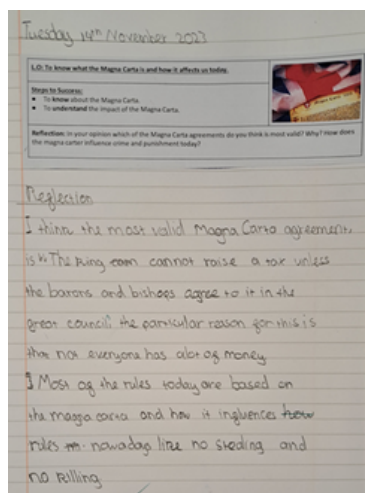 Tuesday 14th November 2023
L.O: To know what the Magna Carta is and how it affects us today.
Steps to Success:
• To know about the Magna Carta.
• To understand the impact of the Magna Carta.
Reflection: In your opinion which of the Magna Carta agreements do you think is most valid? Why? How does
the magna carter influence crime and punishment today?
Reflection
I think the most valid Magna Carta agreement,
is "The king cannot raise a tax unless
the barons and bishops agree to it in the
great council" the particular reason for this is
that not everyone has alot of money
Most of the rules today are based on
the magna carta and how it influences how
rules nowadays like no stealing and
no killing.